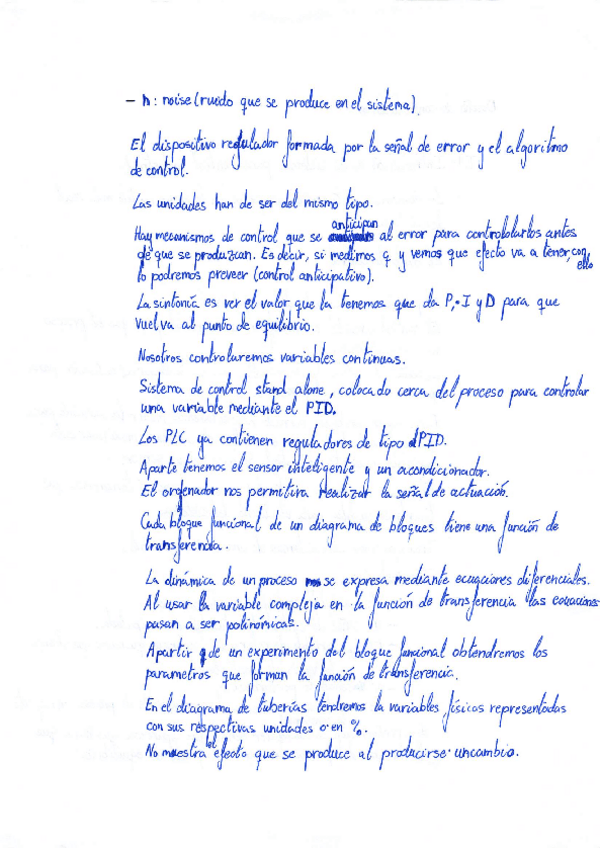 - n: noise (ruido que se produce en el sistema).
El dispositivo regulador formada por la señal de error y el algoritmo
de control.
Las unidades han de ser del mismo tipo.
Hay mecanismos de control que se anticipan al error para contrololarlos antes
de que se produzcan. Es decir, si medimos q y vemos que efecto va a tener, con ello
lo podremos preveer (control anticipativo).
La sintonía es ver el valor que la tenemos que da P, I y D para que
vuelva al punto de equilibrio.
Nosotros controlaremos variables continuas.
Sistema de control stand alone, colocado cerca del proceso para controlar
una variable mediante el PID.
Los PLC ya contienen reguladores de tipo PID.
Aparte tenemos el sensor inteligente y un acondicionador.
El ordenador nos permitira realizar la señal de actuación.
Cada bloque funcional de un diagrama de bloques tiene una función de
transferencia.
La dinámica de un proceso se expresa mediante ecuaciones diferenciales.
Al usar la variable compleja en la función de transferencia las ecuaciones
pasan a ser polinómicas.
Apartir de un experimento del bloque funcional obtendremos los
parametros que forman la función de transferencia.
En el diagrama de tuberías tendremos la variables físicas representadas
con sus respectivas unidades o en %.
No muestra el efecto que se produce al producirse un cambio.